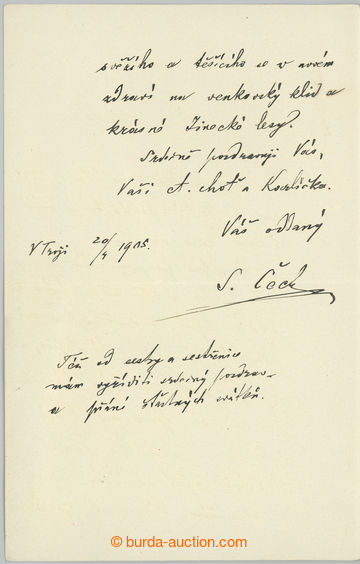 svěžího a těšícího se v novém
zdraví na venkovský klid a
krásné Jinecké lesy.
Srdečně pozdravuji Vás,
Vaši ct. choť a Karlíčka.
Váš oddaný
V Troji 20/4 1905.
S. Čech
Též od sestry a sestřenice
mám vyříditi srdečný pozdrav
a přání šťastných svátků.
© burda-auction.com